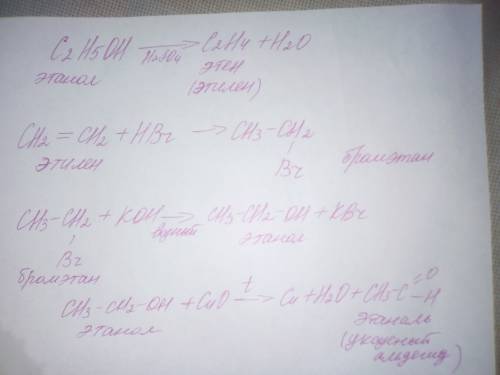 C2H5OH →H2SO4 C2H4 + H2O
этанол этен
(этилен)
CH2 = CH2 + HBr → CH3 - CH2
Br
этилен бромэтан
CH3 - CH2 + KOH → CH3 - CH2 - OH + KBr
Br водный этанол
бромэтан
CH3 - CH2 - OH + CuO t→ Cu + H2O + CH3C =O - H
этанол этаналь
(уксусный
альдегид)